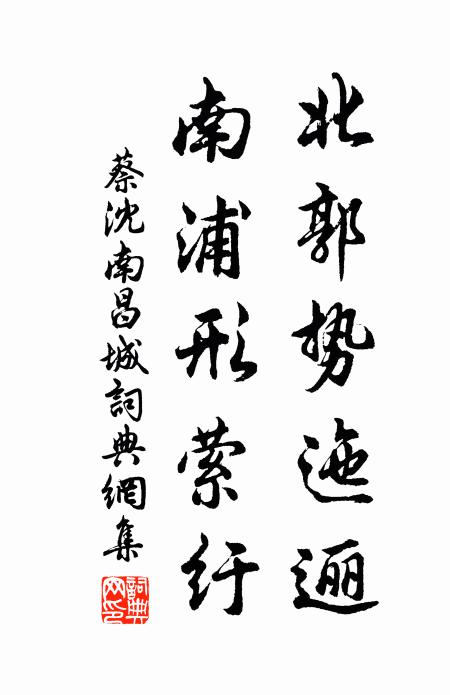 北郭势迤逦
南浦形萦纡
蔡沈南昌城詞典網集
詞典网印